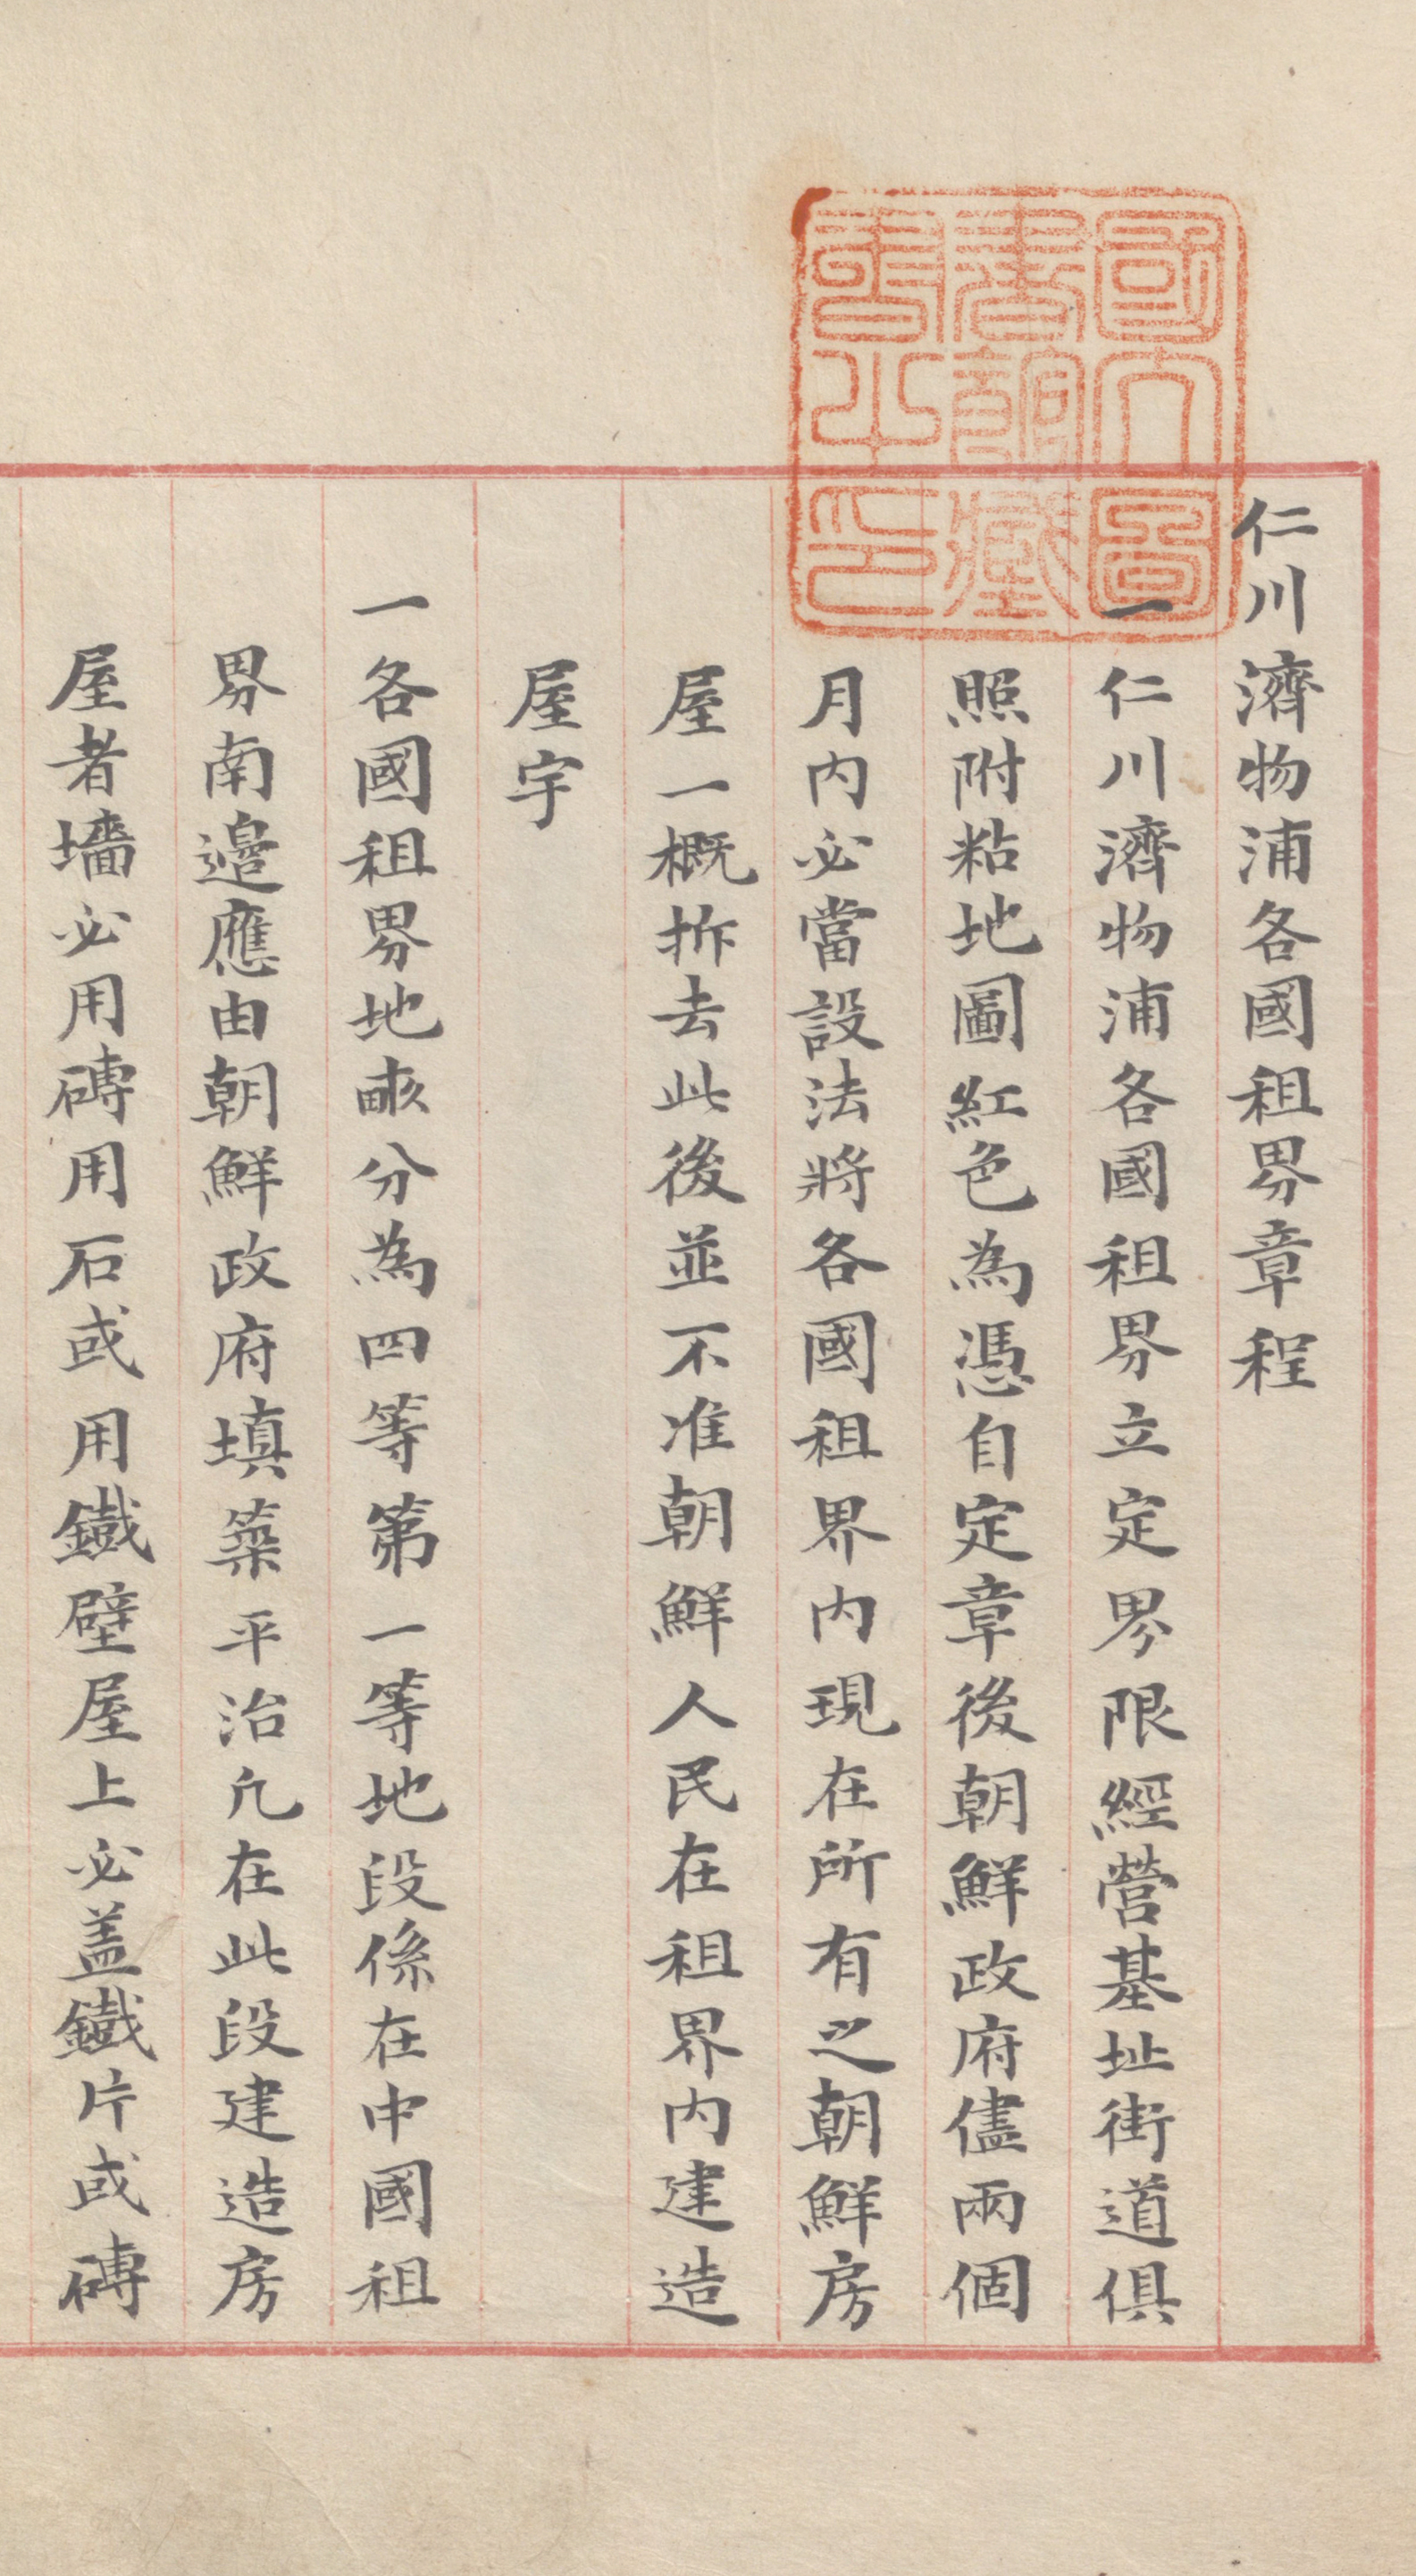 仁川濟物浦各國租界章程
一仁川濟物浦各國租界立定界限經營基址街道俱
照附粘地圖紅色為憑自定章後朝鮮政府儘兩個
月內必當設法將各國租界內現在所有之朝鮮房
屋一概拆去此後並不准朝鮮人民在租界內建造
屋宇
一各國租界地畝分為四等第一等地段係在中國租
界南邉應由朝鮮政府填築平治凢在此段建造房
屋者墻必用磚用石或用鐵壁屋上必盖鐵片或磚
國立圖
書館藏
書之印